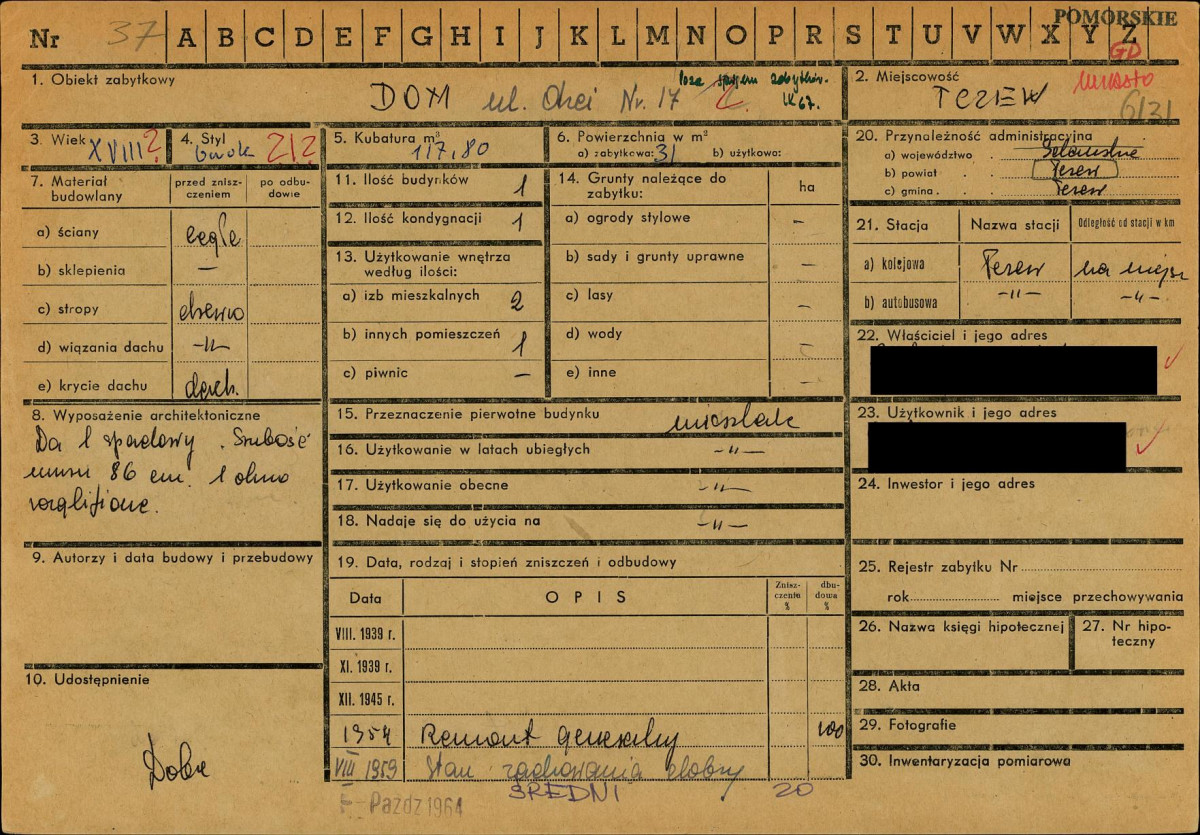 POMORSKIE
Nr 37 A B C D E F G H I J K L M N O P R S T U V W X Y Z
GD
1. Obiekt zabytkowy
DOM ul. Nr. 17
Poza spisem zabytków.
IX 67.
2. Miejscowość
TCZEW
miasto
6/31
3. Wiek XVIII ?
4. Styl barok 212
5. Kubatura m³
117,80
6. Powierzchnia w m²
a) zabytkowa: 31 b) użytkowa:
7. Materiał budowlany
przed zniszczeniem
po odbudowie
a) ściany cegła
b) sklepienia —
c) stropy drewno
d) wiązania dachu -"-
e) krycie dachu dach.
8. Wyposażenie architektoniczne
Da 1 spadowy. Grubość
muru 86 cm. 1 okno
9. Autorzy i data budowy i przebudowy
10. Udostępnienie
Dobre
11. Ilość budynków 1
12. Ilość kondygnacji 1
13. Użytkowanie wnętrza według ilości:
a) izb mieszkalnych 2
b) innych pomieszczeń 1
c) piwnic —
14. Grunty należące do zabytku:
ha
a) ogrody stylowe —
b) sady i grunty uprawne —
c) lasy —
d) wody —
e) inne —
15. Przeznaczenie pierwotne budynku mieszkalne
16. Użytkowanie w latach ubiegłych -"-
17. Użytkowanie obecne -"-
18. Nadaje się do użycia na -"-
19. Data, rodzaj i stopień zniszczeń i odbudowy
Data
OPIS
Zniszczenia %
dbudowa %
VIII. 1939 r.
XI. 1939 r.
XII. 1945 r.
1954 Remont generalny 100
VIII 1959 Stan zachowania dobry
Paźdz 1964 ŚREDNI 20
20. Przynależność administracyjna
a) województwo Gdańskie
b) powiat Tczew
c) gmina Tczew
21. Stacja
Nazwa stacji
Odległość od stacji w km
a) kolejowa Tczew na miejsc
b) autobusowa -"- -"-
22. Właściciel i jego adres
23. Użytkownik i jego adres
24. Inwestor i jego adres
25. Rejestr zabytku Nr
rok miejsce przechowywania
26. Nazwa księgi hipotecznej
27. Nr hipoteczny
28. Akta
29. Fotografie
30. Inwentaryzacja pomiarowa